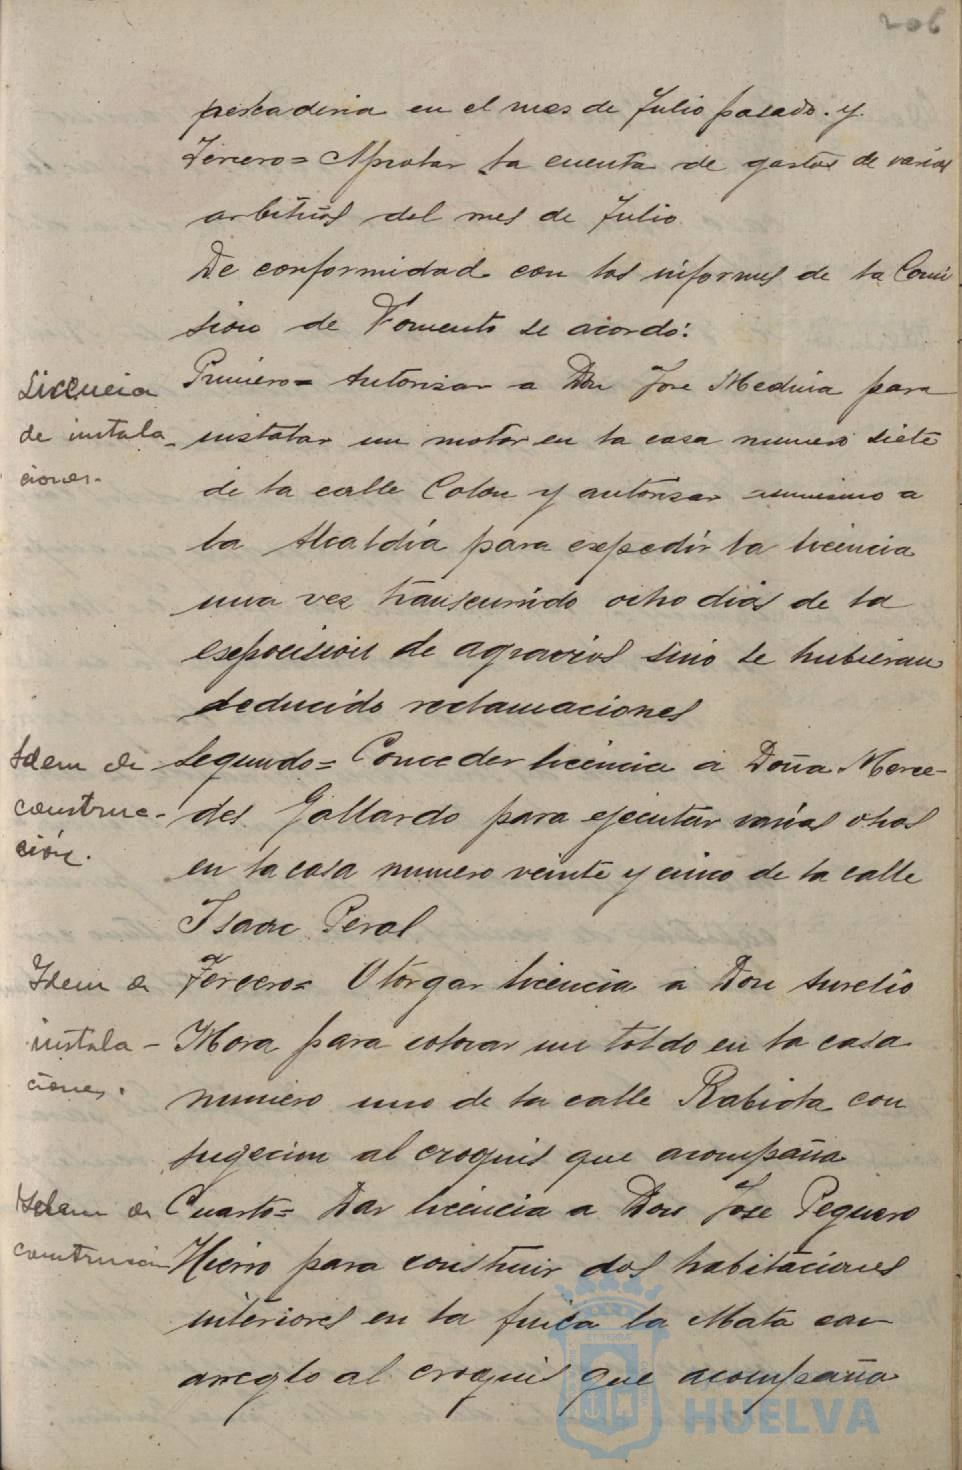 206
pescaderia en el mes de Julio pasado. y
Tercero= Aprobar la cuenta de gastos de varios
arbitrios del mes de Julio
De conformidad con los informes de la Comi
sion de Fomento se acordó:
Licencia
de instala
ciones.-
Primero= Autorizar a Don Jose Medina para
instalar un motor en la casa numero siete
de la calle Colon y autorizar asimismo a
la Alcaldía para expedir la licencia
una vez transcurrido ocho dias de la
exposision de agravios sino se hubieran
deducido reclamaciones
Idem de
construc-
ción.
Segundo= Conceder licencia a Doña Merce-
des Gallardo para ejecutar varias obras
en la casa numero veinte y cinco de la calle
Isaac Peral
Idem de
instala-
ciones.
Tercero= Otorgar licencia a Don Aurelio
Mora para colocar un toldo en la casa
numero uno de la calle Rabida con
sugecion al croquis que acompaña
Idem de
construccion
Cuarto= Dar licencia a Don Jose Peguero
Hierro para construir dos habitaciones
interiores en la finca la Mata con
arreglo al croquis que acompaña
HUELVA